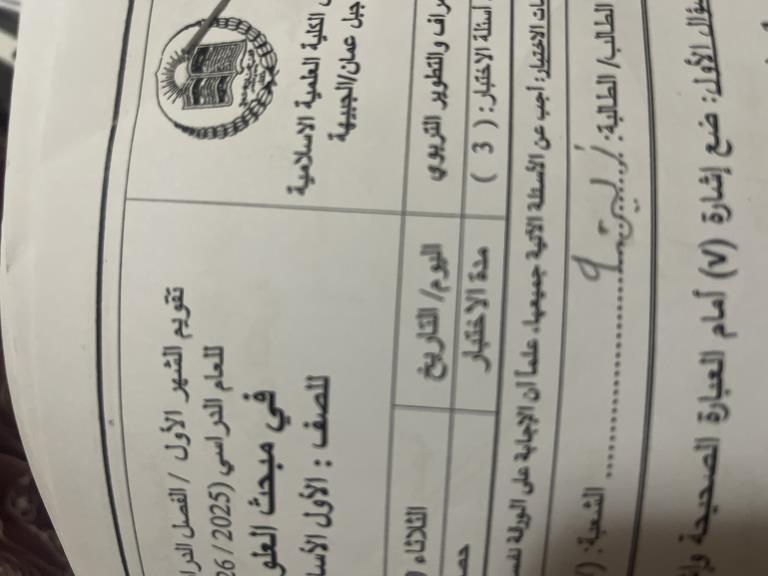 الكلية العلمية الاسلامية
جبل عمان/الجبيهة
تقويم الشهر الأول / الفصل
للعام الدراسي (2025 / 26
في مبحث
للصف : الأول
والتطوير التربوي
اليوم/ التاريخ
الثلاثاء
أسئلة الاختبار: ( 3 )
مدة الاختبار
الاختبار: أجب عن الأسئلة الآتية جميعها، علما أن الإجابة على الورقة
الطالب/ الطالبة: الشعبة: (
الأول: ضع إشارة (√) أمام العبارة الصحيحة